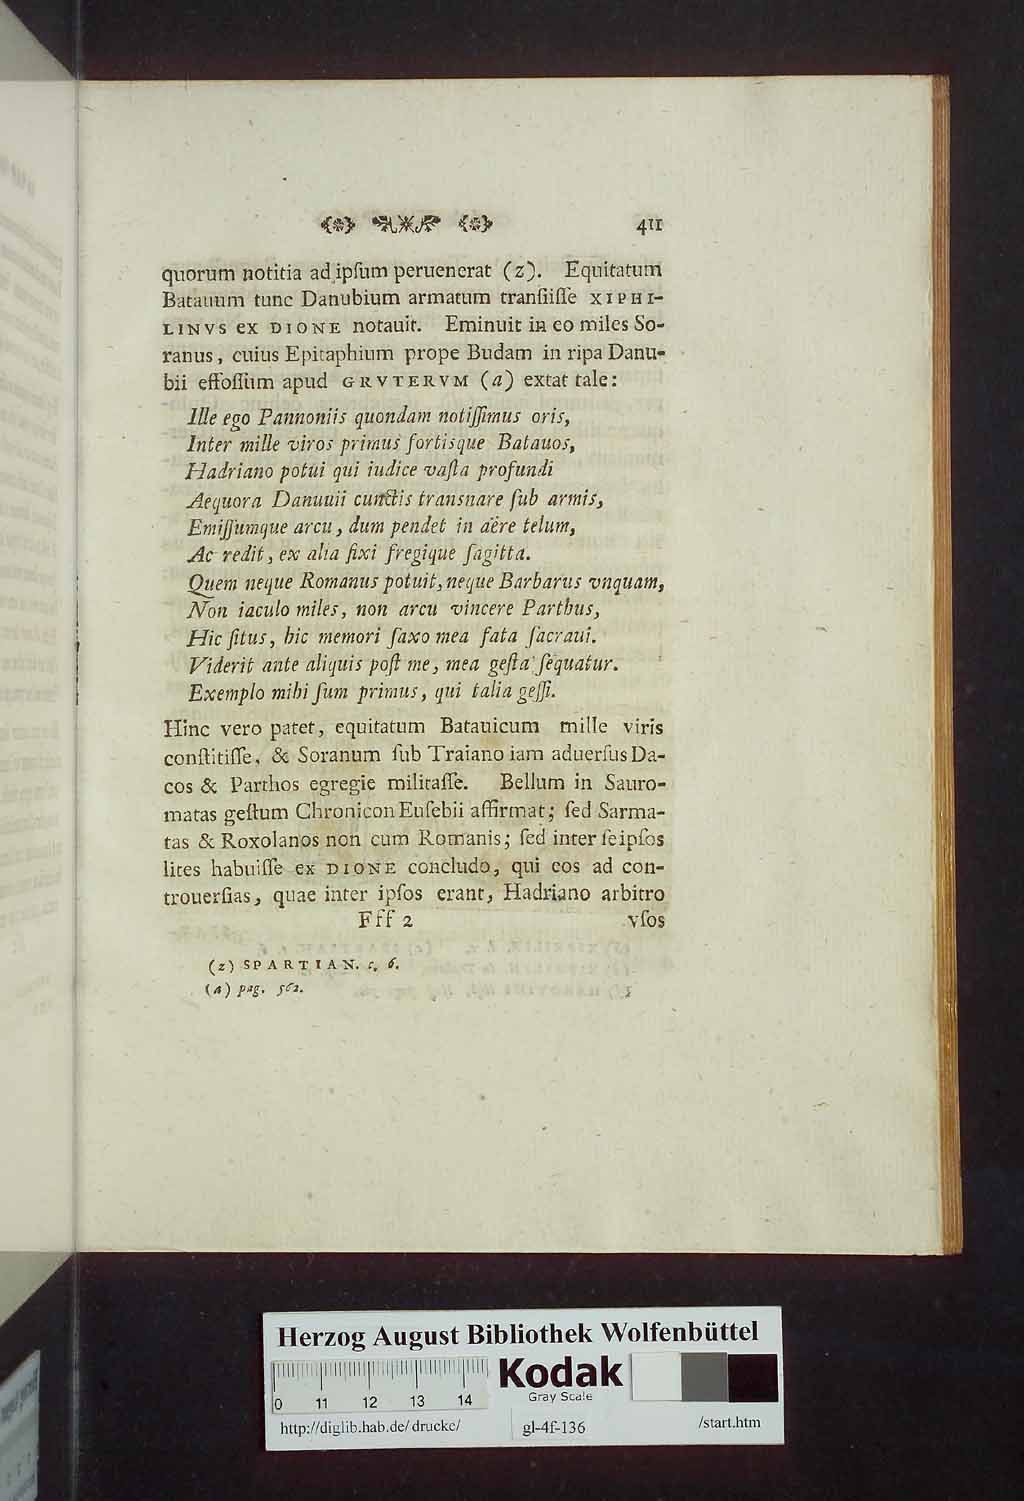 411
quorum notitia ad ipſum peruenerat (z). Equitatum
Batauum tunc Danubium armatum tranſiiſſe XIPHI-
LINVS ex DIONE notauit. Eminuit in eo miles So-
ranus, cuius Epitaphium prope Budam in ripa Danu-
bii effoſſum apud GRVTERVM (a) extat tale:
Ille ego Pannoniis quondam notiſſimus oris,
Inter mille viros primus fortisque Batauos,
Hadriano potui qui iudice vaſta profundi
Aequora Danuuii cunctis transnare ſub armis,
Emiſſumque arcu, dum pendet in aëre telum,
Ac redit, ex alia fixi fregique ſagitta.
Quem neque Romanus potuit, neque Barbarus vnquam,
Non iaculo miles, non arcu vincere Parthus,
Hic ſitus, hic memori ſaxo mea fata ſacraui.
Viderit ante aliquis poſt me, mea geſta ſequatur.
Exemplo mihi ſum primus, qui talia geſſi.
Hinc vero patet, equitatum Batauicum mille viris
conſtitiſſe, & Soranum ſub Traiano iam aduerſus Da-
cos & Parthos egregie militaſſe. Bellum in Sauro-
matas geſtum Chronicon Euſebii affirmat; ſed Sarma-
tas & Roxolanos non cum Romanis; ſed inter ſeipſos
lites habuiſſe ex DIONE concludo, qui eos ad con-
trouerſias, quae inter ipſos erant, Hadriano arbitro
Fff 2 vſos
(z) SPARTIAN. c. 6.
(a) pag. 562.
Herzog August Bibliothek Wolfenbüttel
Kodak
Gray Scale
0 11 12 13 14
http://diglib.hab.de/drucke/ gl-4f-136 /start.htm